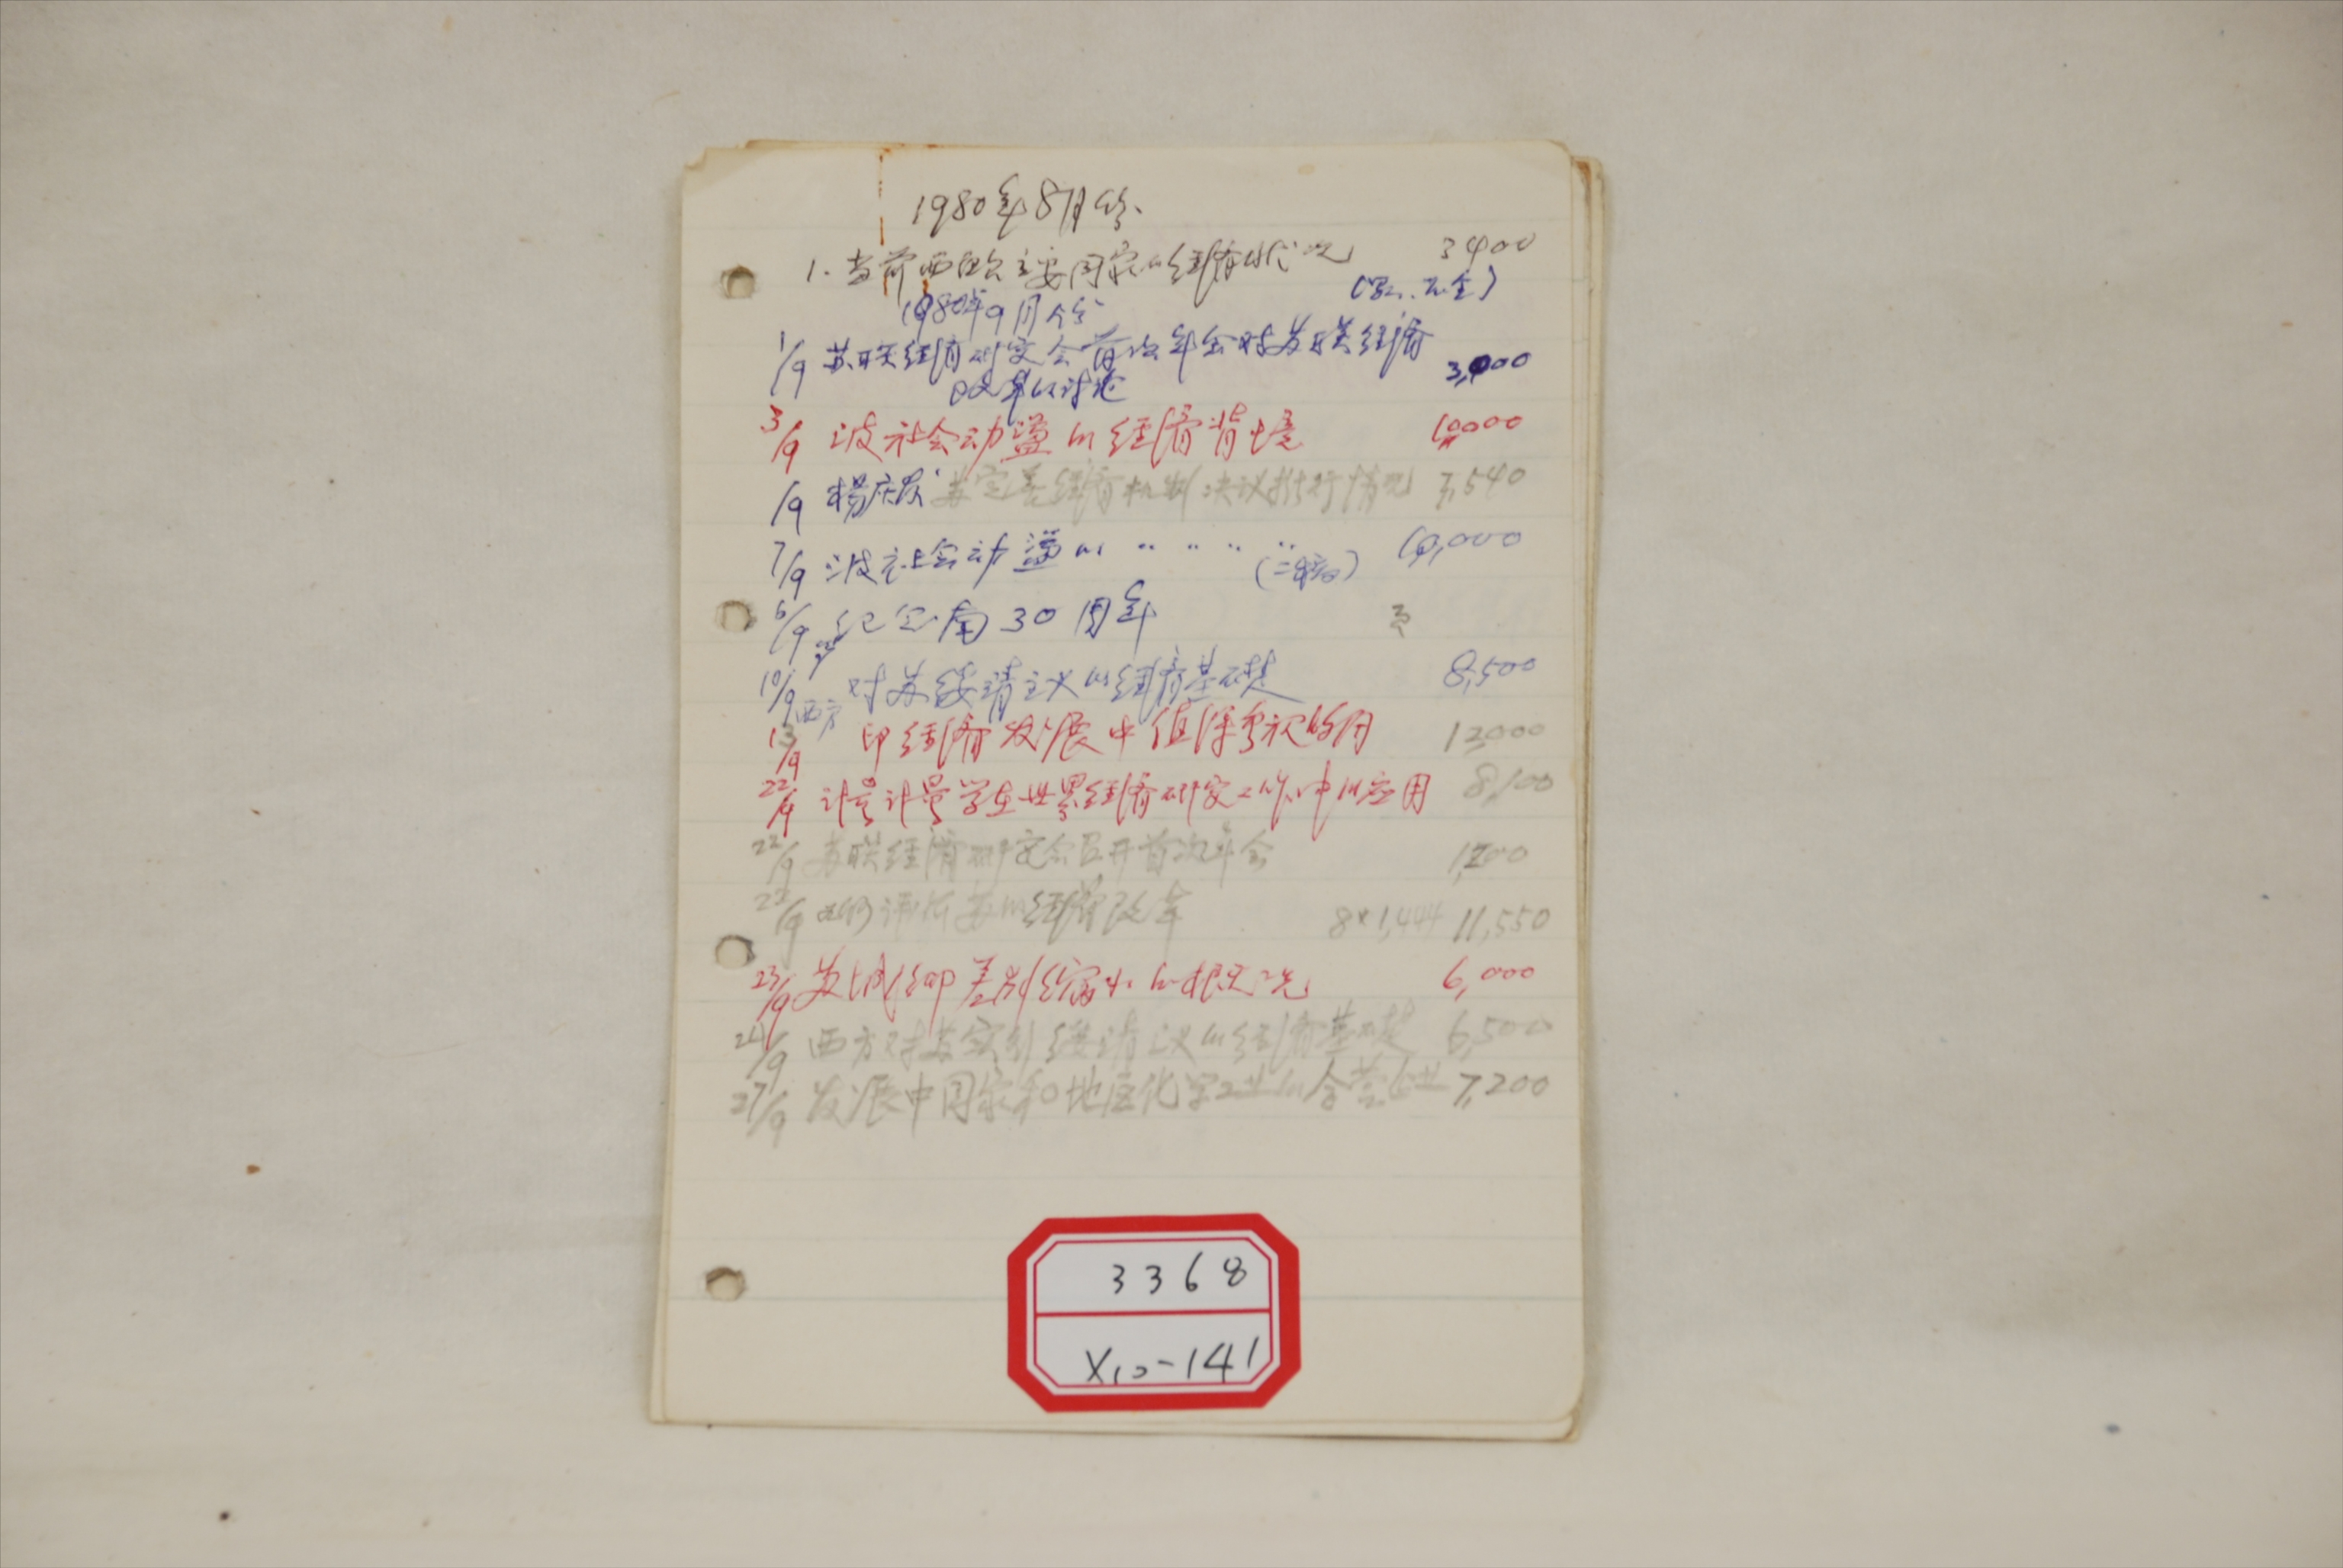 1980年8月份
1. 当前西欧主要国家的经济状况 3400
1980年9月份
1/9 苏联经济研究会首次年会对苏联经济
改革的讨论 3,000
3/9 波社会动荡的经济背境 10,000
/9 杨庆发 苏完善经济机制决议执行情况 3,540
7/9 波社会动荡的 〃 〃 〃 〃 10,000
(二稿)
6/9 纪念 30周年
10/9 西方对苏绥靖主义的经济基础 8,500
13/9 印经济发展中值得重视的 12000
22/9 计量学在世界经济研究工作中的应用 8,100
22/9 苏联经济研究会召开首次年会 1,200
23/9 如何评价苏的经济改革 8×1,444 11,550
23/9 苏城乡差别缩小的概况 6,000
24/9 西方对苏实行绥靖主义的经济基础 6,500
27/9 发展中国家和地区化学工业的合营企业 7,200
3368
X10-141